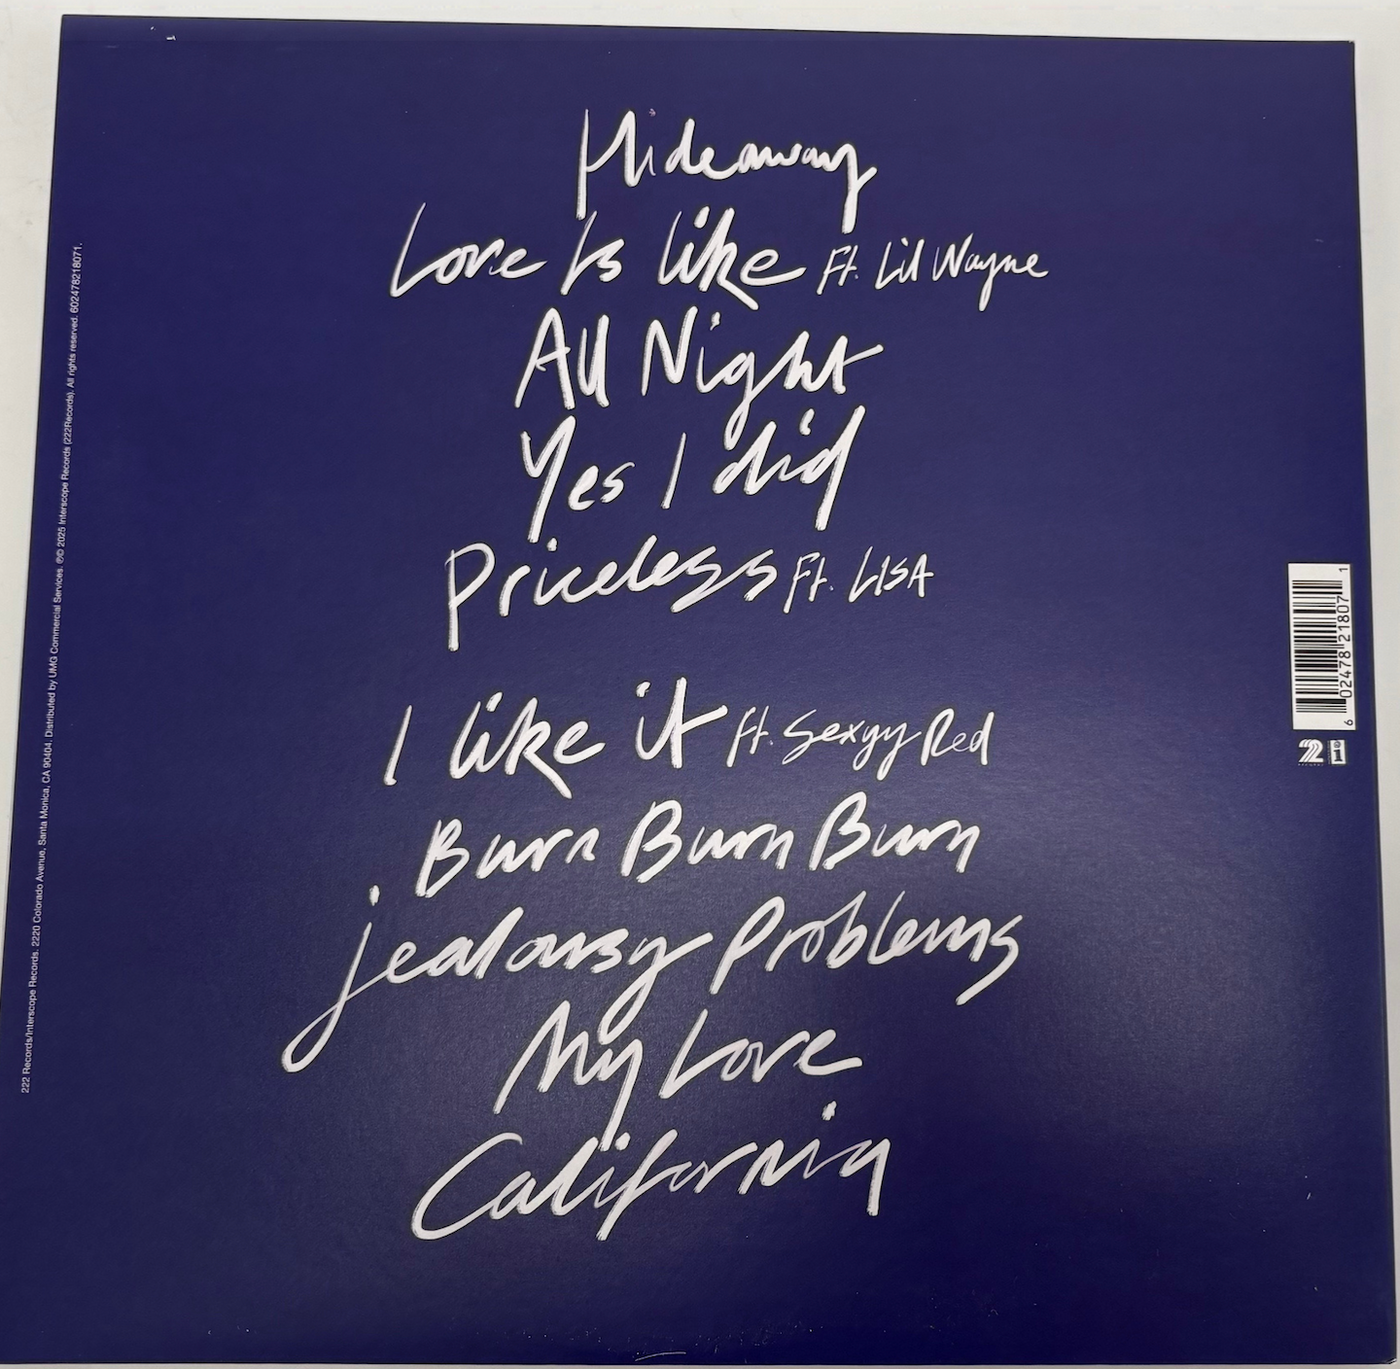 Hideaway
Love Is like Ft. Lil Wayne
All Night
Yes I did
Priceless Ft. LISA
I like it ft. Sexyy Red
Burn Burn Burn
jealousy Problems
My Love
California
222 Records/Interscope Records. 2220 Colorado Avenue, Santa Monica, CA 90404. Distributed by UMG Commercial Services. ℗© 2025 Interscope Records (222Records). All rights reserved. 602478218071.
6 02478 21807 1
2 i